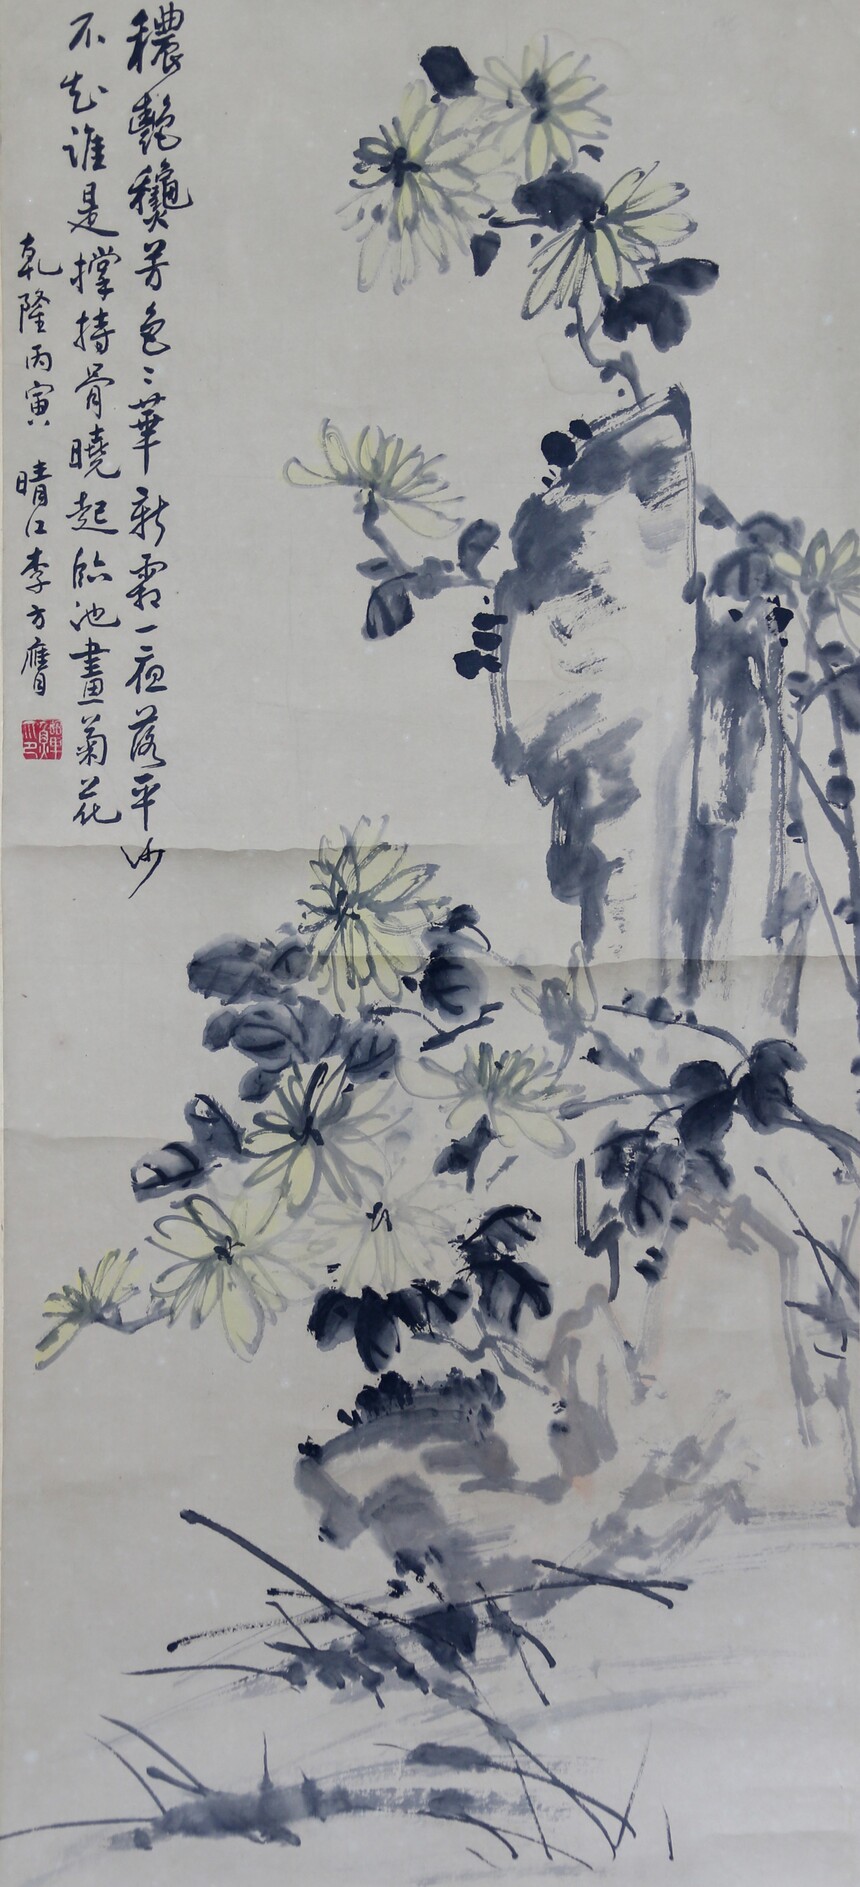 穠艷穠芳色〻華新霜一夜落平沙
不知誰是撐持骨曉起臨池畫菊花
乾隆丙寅 晴江李方膺